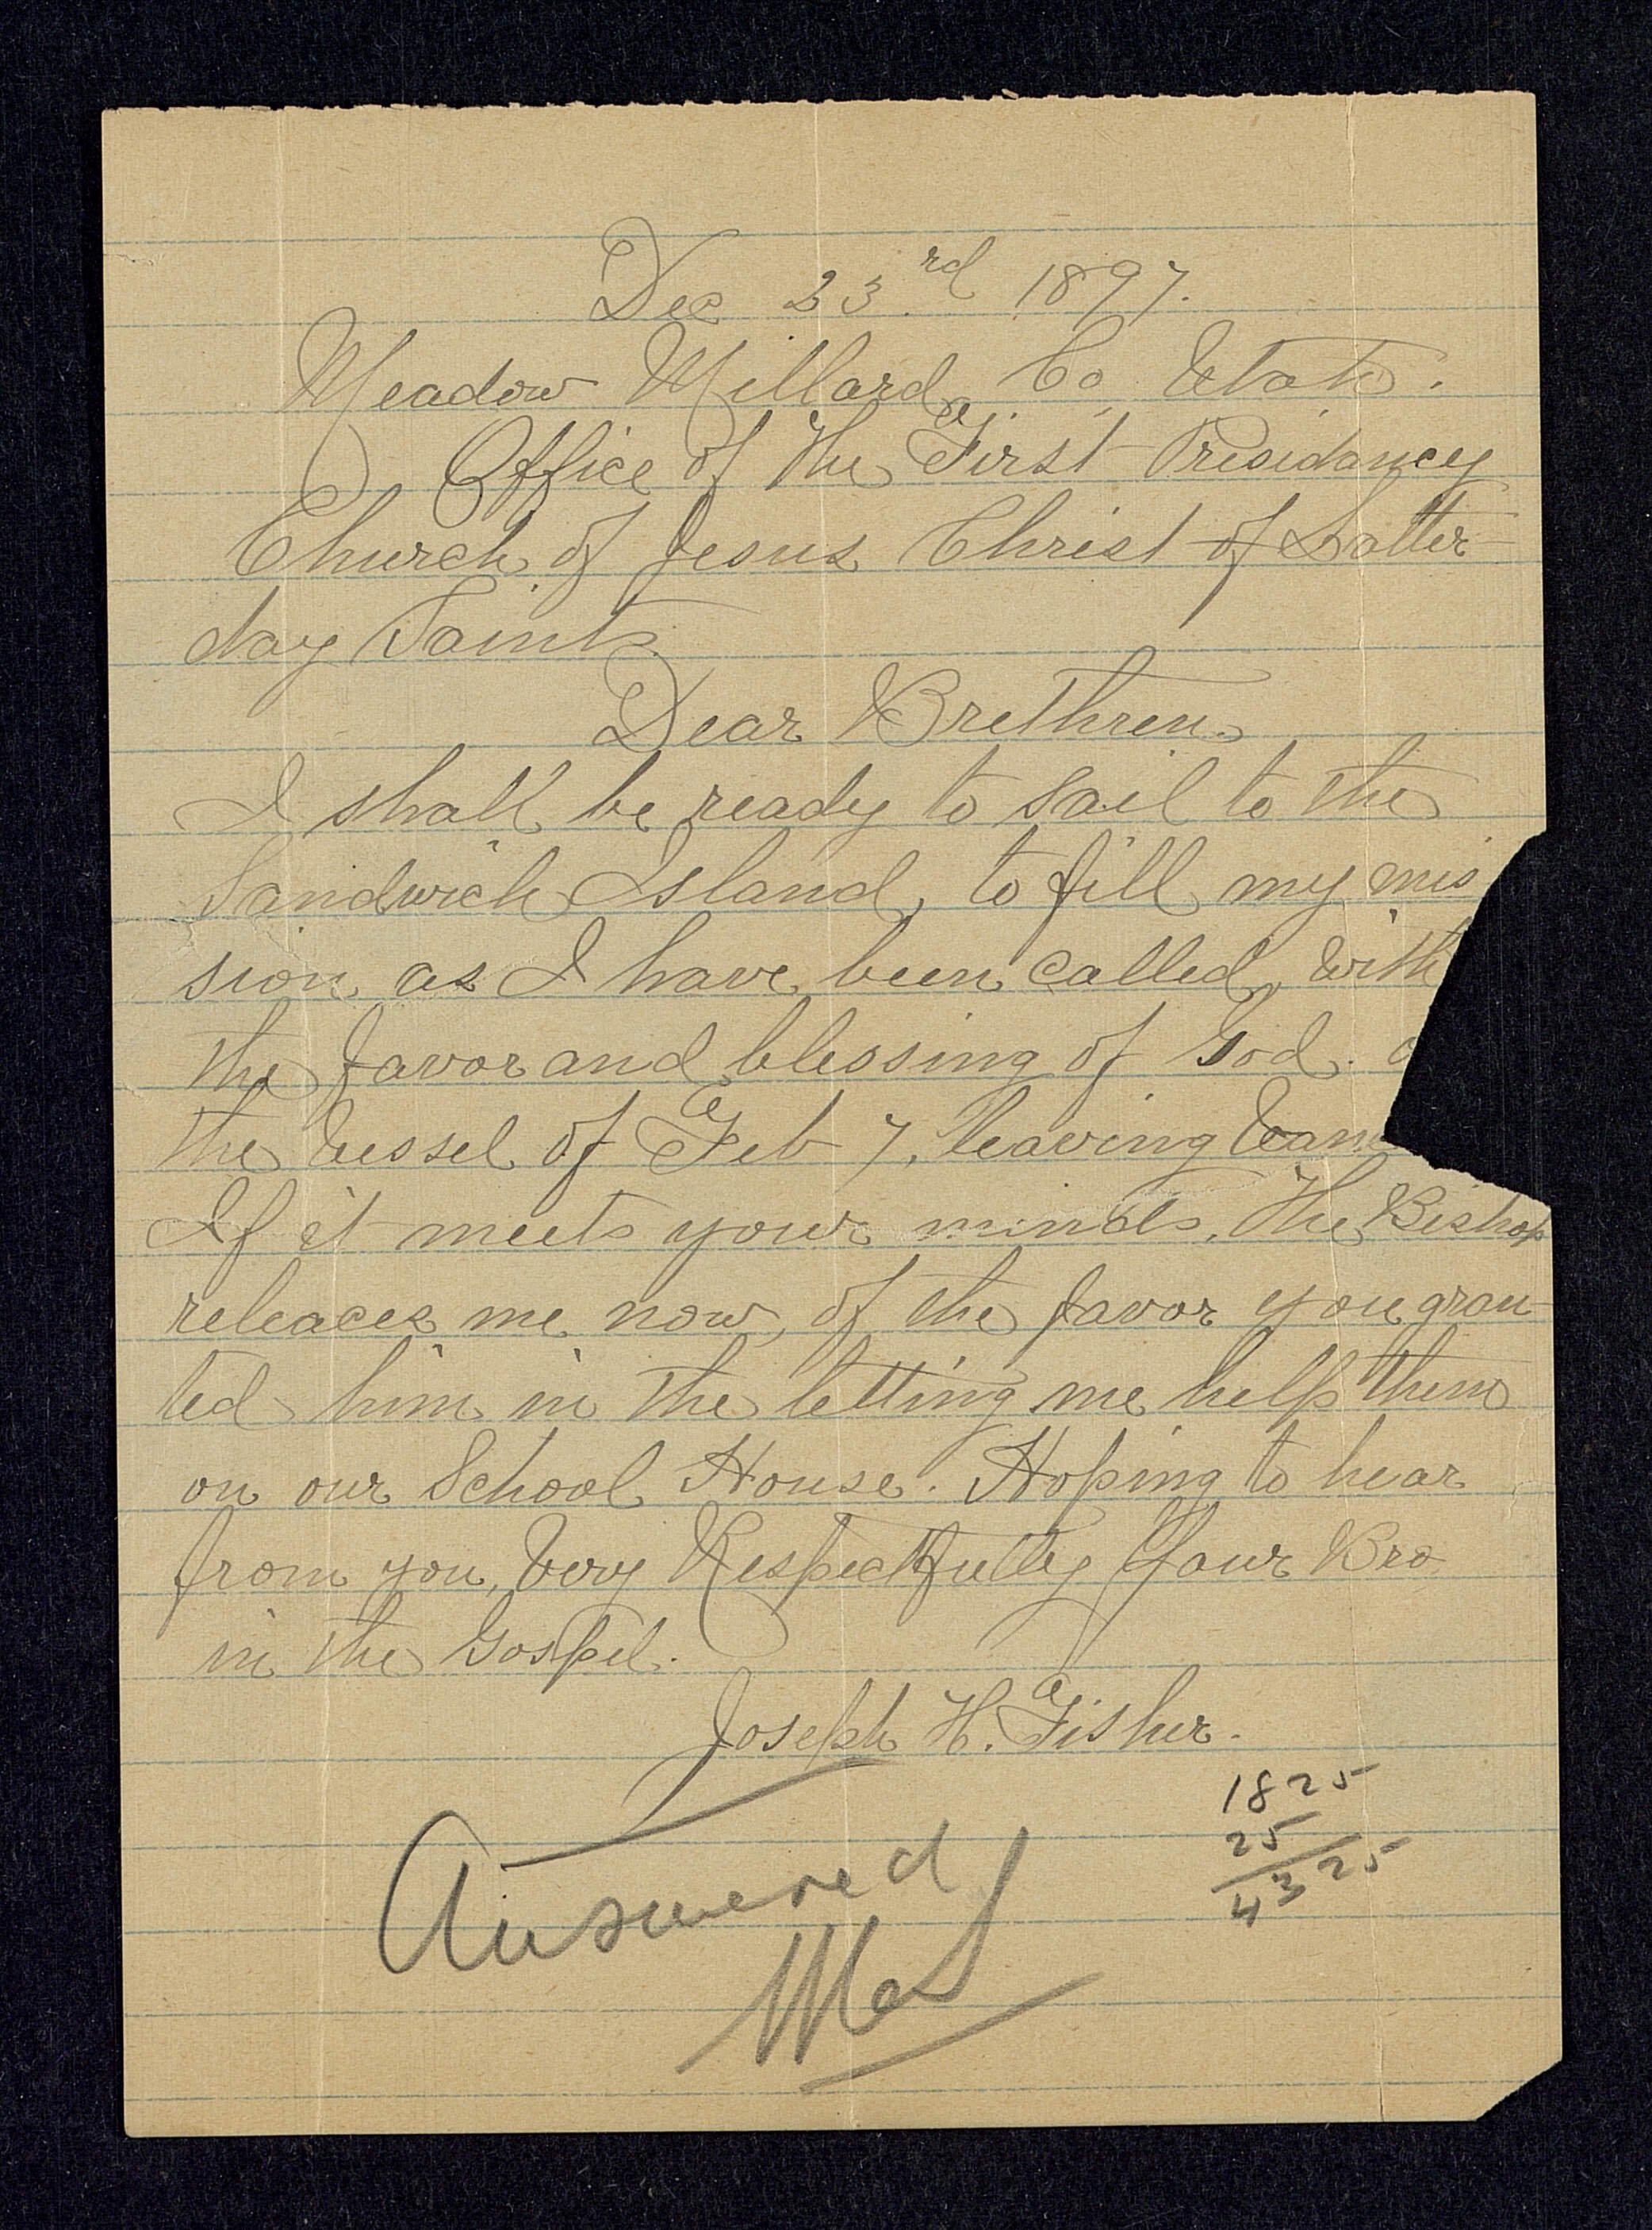 Dec 23rd 1897.
Meadow Millard, Co, Utah.
Office of the First Presidancy
Church of Jesus Christ of Latter-
day Saints
Dear Brethren.
I shall be ready to sail to the
Sandwich Island, to fill my mis
sion as I have been called, with
the favor and blessing of God.
the vessel of Feb 7, leaving Van
If it meets your minds, The Bishop
releaces me now, of the favor you gran
ted him in the letting me help them
on our School House. Hoping to hear
from you, Very Respectfully Your Bro
in the Gospel.
Joseph H. Fisher.
1825
25
4325
Answered